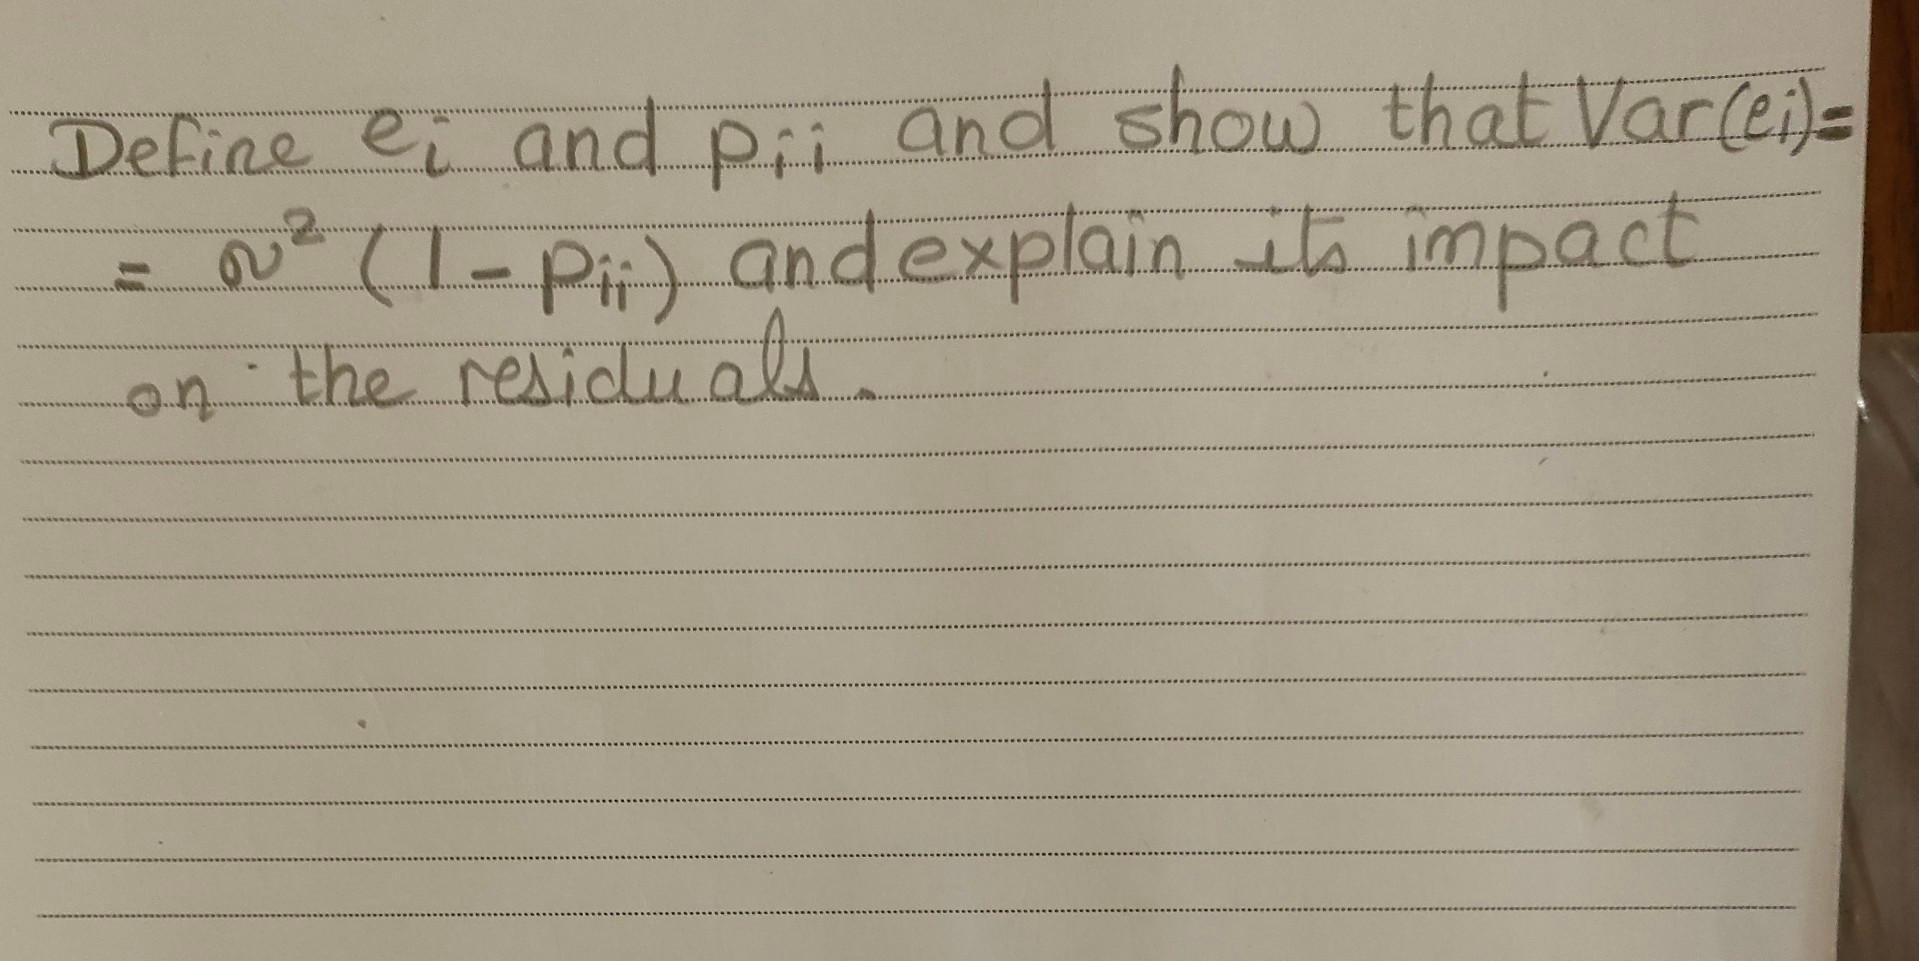 Define ei and pii and show that Var(ei)=
= σ² (1-Pii) and explain its impact
on the residuals.